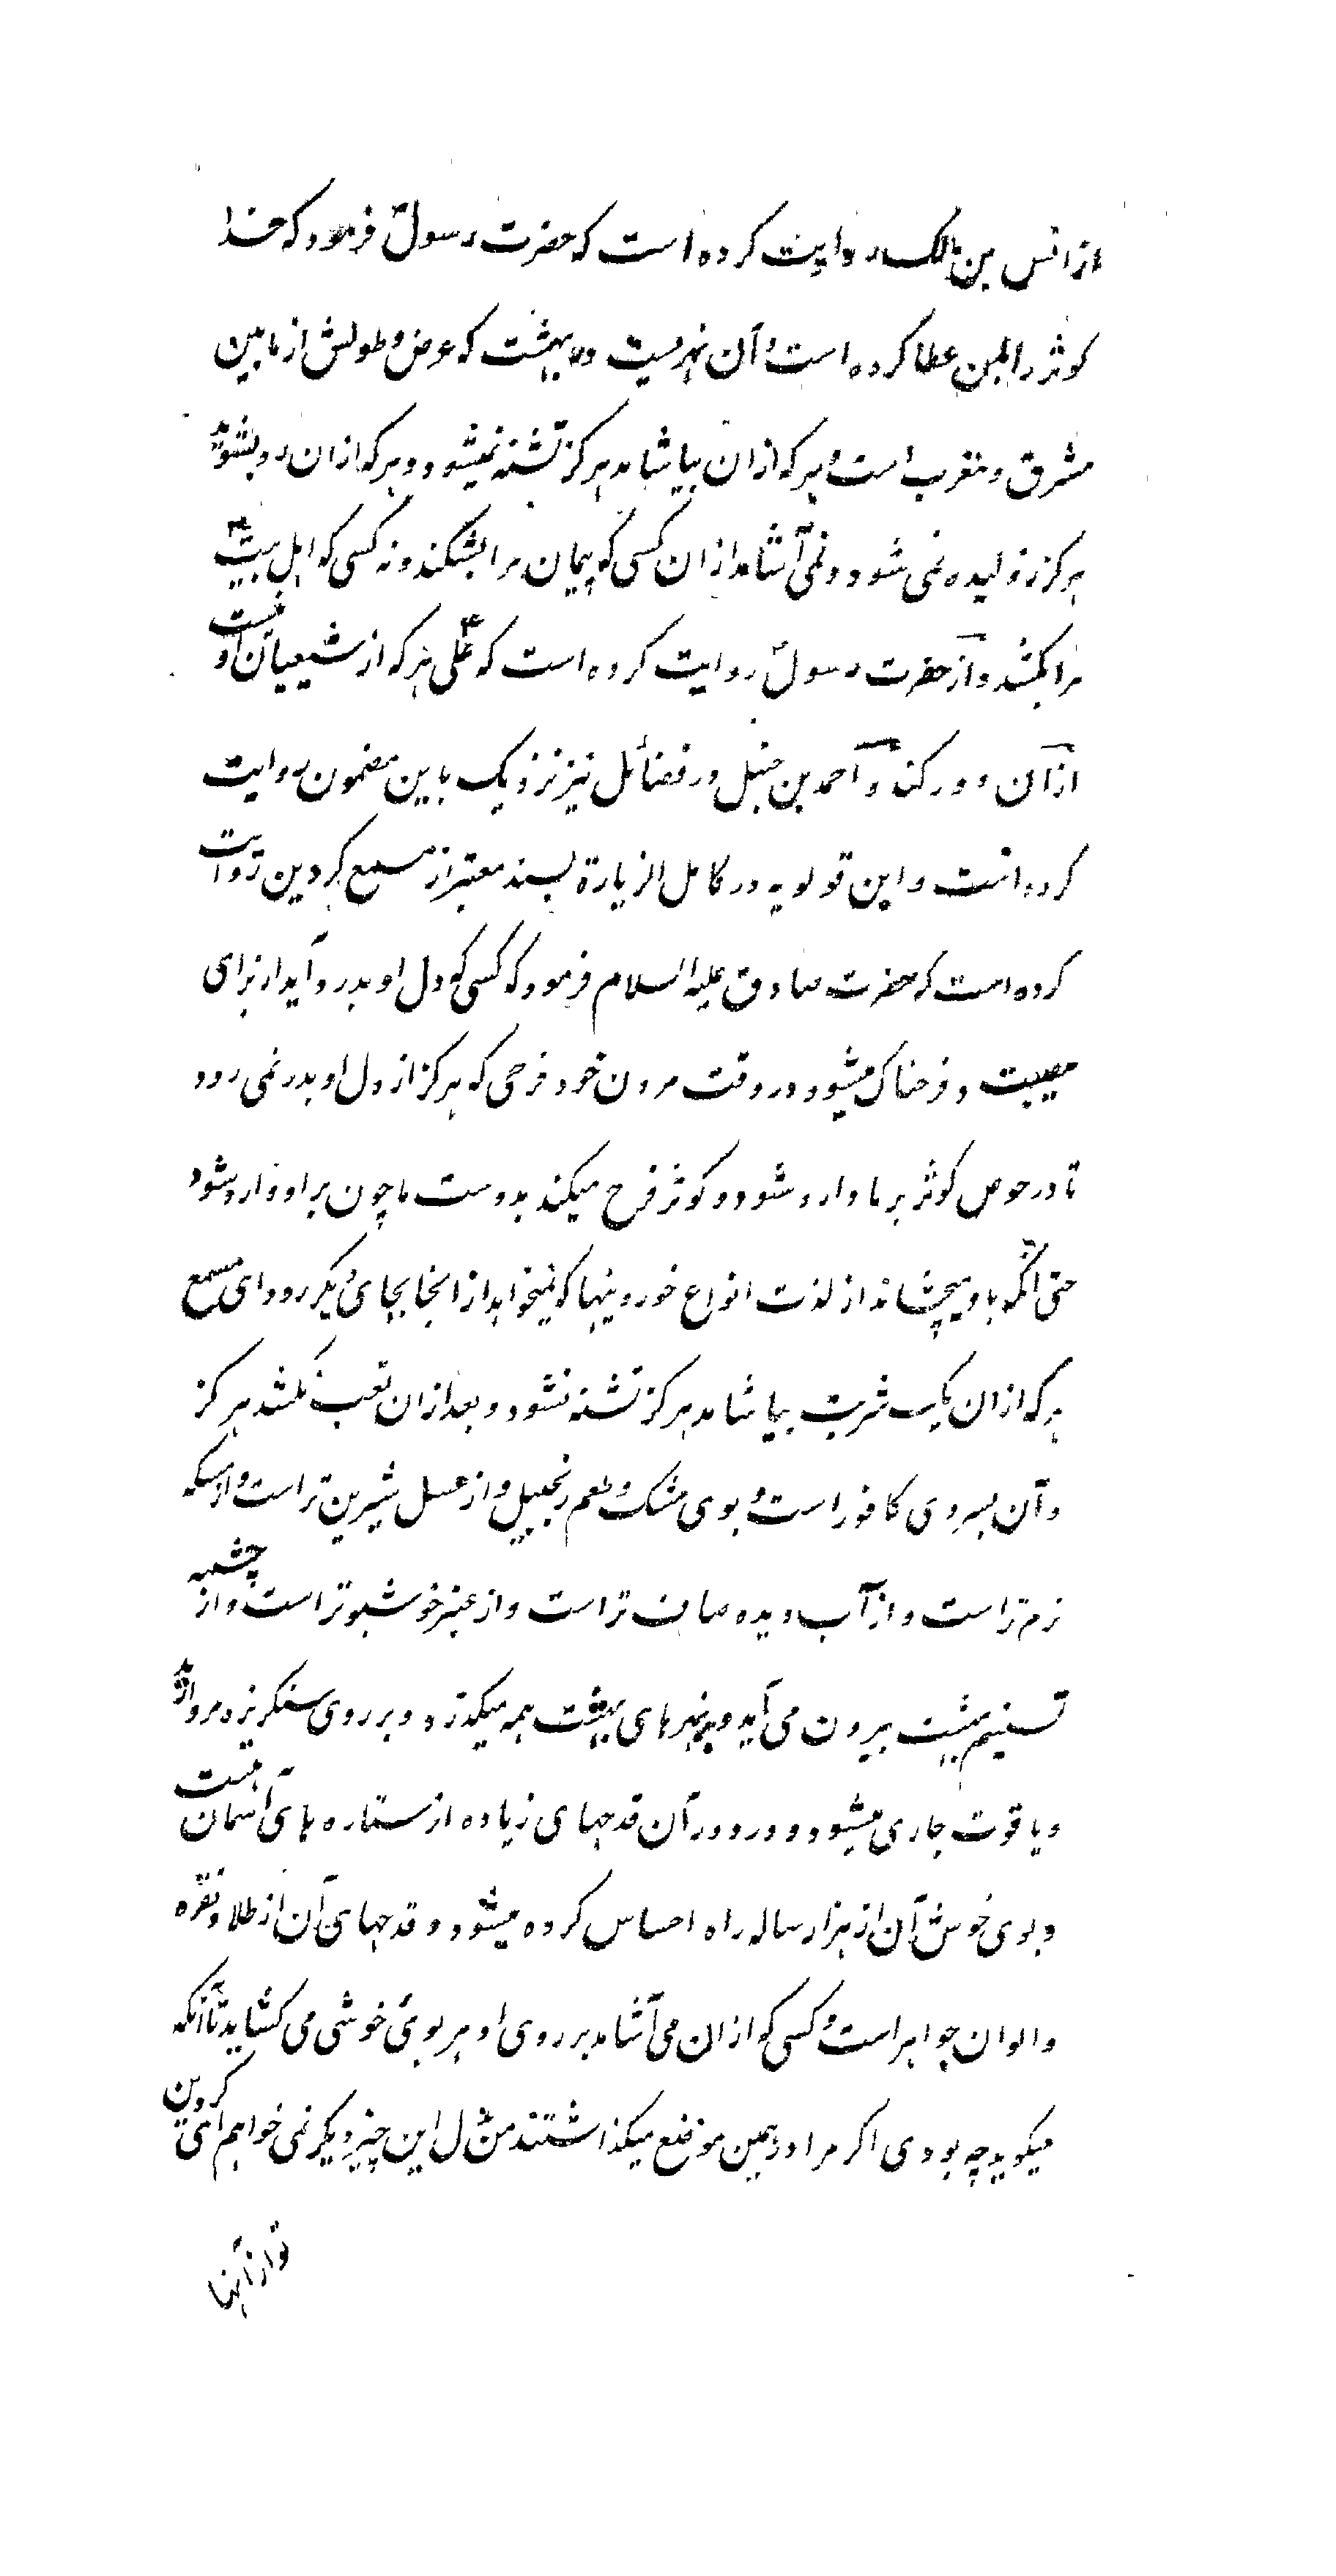 از انس بن مالک روایت کرده است که حضرت رسولؐ فرمود که خدا
کوثر را بمن عطا کرده است و آن نهریست در بهشت که عرض و طولش از مابین
مشرق و مغرب است و هر که از ان بیاشامد هرکز تشنه نمیشود و هر که از ان رو بشوید
هرکز ژولیده نمی شود و نمی آشامد از ان کسی که پیمان مرا بشکند و نه کسی که اهل بیت
مرا بکشد و از حضرت رسولؐ روایت کرده است که علیؑ هر که از شیعیان او نیست
از آن دور کند و احمد بن حنبل در فضائل نیز نزدیک باین مضمون روایت
کرده است و ابن قولویه در کامل الزیارة بسند معتبر از مسمع کردین روایت
کرده است که حضرت صادق علیه السلام فرمود که کسی که دل او بدرد آید از برای
مصیبت و فرحناک میشود در وقت مردن خود فرحی که هرکز از دل او بدر نمی رود
تا در حوض کوثر بر ما وارد شود و کوثر فرح میکند بدوست ما چون بر او وارد شود
حتی انکه باو میچشاند از لذت انواع خوردنیها که نمیخواهد از انجا بجای دیکر رود ای مسمع
هر که از ان یک شربت بیاشامد هرکز تشنه نشود و بعد از ان تعب نکشد هرکز
و آن بسردی کافور است و بوی مشک و طعم زنجبیل و از عسل شیرین تر است و از مسکه
نرم تر است و از آب دیده صاف تر است و از عنبر خوشبوتر است و از چشمه
تسنیم بهشت بیرون می آید و بر نهرهای بهشت همه میکذرد و بر روی سنکریزه مروارید
و یاقوت جاری میشود و در دور آن قدحهای زیاده از ستاره های آسمان هست
و بوی خوش آن از هزار ساله راه احساس کرده میشود و قدحهای آن از طلا و نقره
و الوان جواهر است و کسی که از ان می آشامد بر روی او هر بوی خوشی می کشاید تا آنکه
میکوید چه بودی اکر مرا در همین موضع میکذاشتند من ل این چیز دیکر نمی خواهم ای کردین
تو از آنها